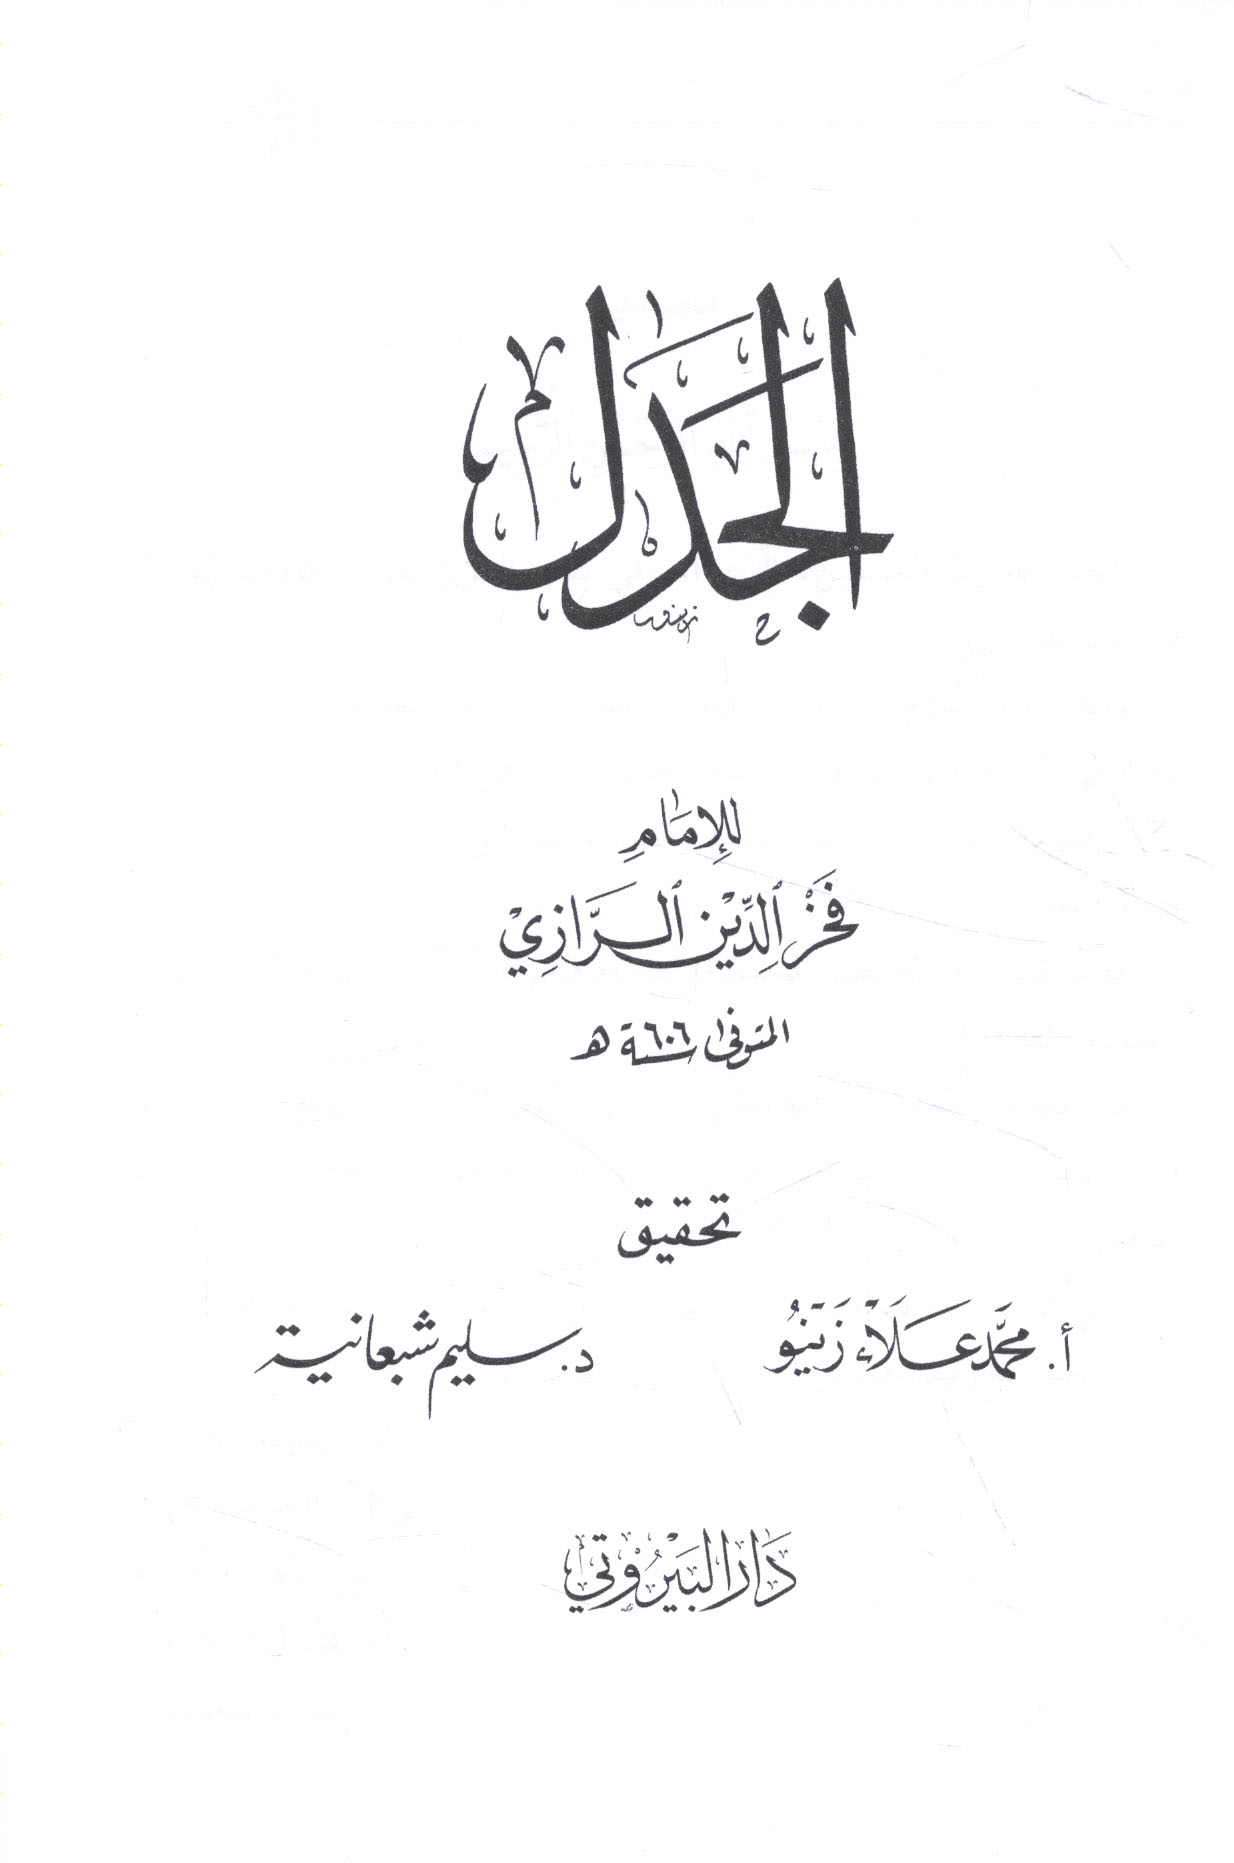 الجدل
للإِمَامِ
فَخْرِ ٱلدِّيْنِ ٱلرَّازِيِّ
المتوفى سنة ٦٠٦ هـ
تحقيق
أ. محمَّد عَلَاءْ زَيْنُو
د. سليم شبعانية
دَار البَيْرُوْتي